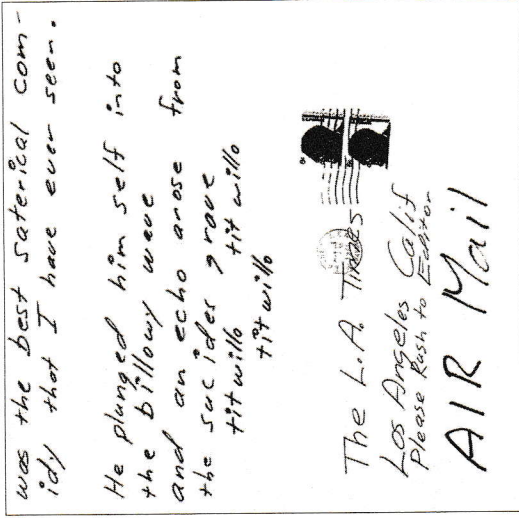 was the best saterical com-
idy that I have ever seen.
He plunged him self into
the billowy wave
and an echo arose from
the sucides grave
titwillo tit willo
titwillo
The L.A. Times
Los Angeles Calif
Please Rush to Editor
AIR Mail